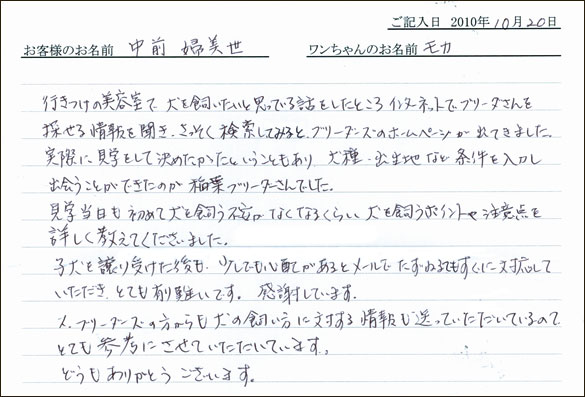 ご記入日 2010年10月20日
お客様のお名前 中前 婦美世 ワンちゃんのお名前 モカ
行きつけの美容室で犬を飼いたいと思っている話をしたところインターネットでブリーダさんを
探せる情報を聞き、さっそく検索してみると、ブリーダーズのホームページが出てきました。
実際に見学をして決めたかったということもあり 犬種・出生地など条件を入力し
出会うことができたのが 稲葉ブリーダーさんでした。
見学当日も初めて犬を飼う不安がなくなるくらい 犬を飼うポイントや注意点を
詳しく教えてくださいました。
子犬を譲り受けた後も、少しでも心配があるとメールでたずねるてもすぐに対応して
いただき、とても有り難いです。感謝しています。
又、ブリーダーズの方からも犬の飼い方に対する情報も送っていただいているので
とても参考にさせていただいています。
どうもありがとうございます。